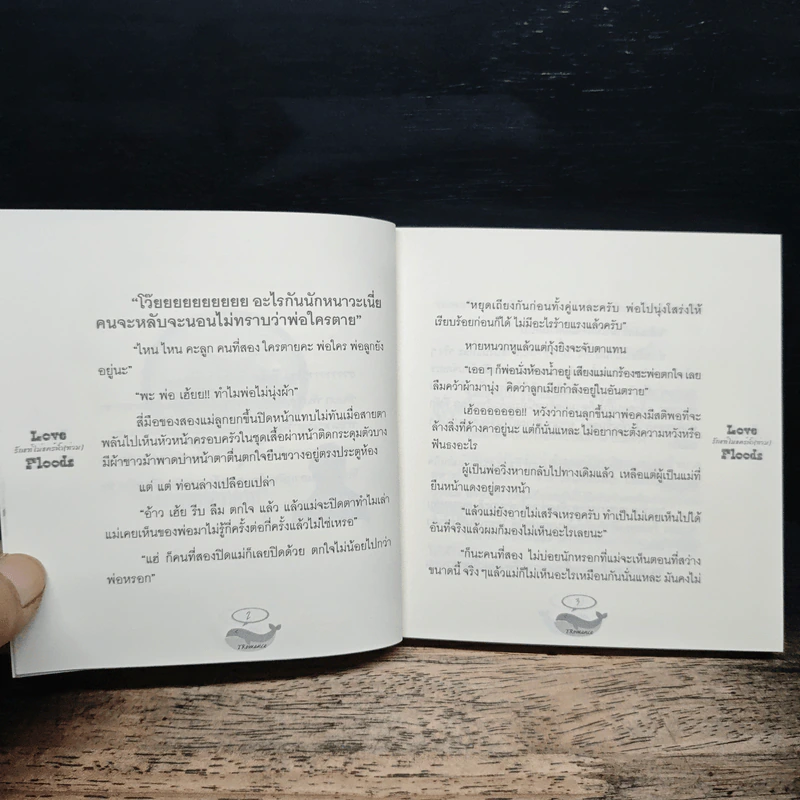 "โว๊ยยยยยยยยยย อะไรกันนักหนาวะเนี่ย
คนจะหลับจะนอนไม่ทราบว่าพ่อใครตาย"
"ไหน ไหน คะลูก คนที่สอง ใครตายคะ พ่อใคร พ่อลูกยัง
อยู่นะ"
"พะ พ่อ เฮ้ยย!! ทำไมพ่อไม่นุ่งผ้า"
สี่มือของสองแม่ลูกยกขึ้นปิดหน้าแทบไม่ทันเมื่อสายตา
พลันไปเห็นหัวหน้าครอบครัวในชุดเสื้อผ่าหน้าติดกระดุมตัวบาง
มีผ้าขาวม้าพาดบ่าหน้าตาตื่นตกใจยืนขวางอยู่ตรงประตูห้อง
แต่ แต่ ท่อนล่างเปลือยเปล่า
"อ้าว เฮ้ย รีบ ลืม ตกใจ แล้ว แล้วแม่จะปิดตาทำไมเล่า
แม่เคยเห็นของพ่อมาไม่รู้กี่ครั้งต่อกี่ครั้งแล้วไม่ใช่เหรอ"
"แฮ่ ก็คนที่สองปิดแม่ก็เลยปิดด้วย ตกใจไม่น้อยไปกว่า
พ่อหรอก"
Love
Floods
2
"หยุดเถียงกันก่อนทั้งคู่แหละครับ พ่อไปนุ่งโสร่งให้
เรียบร้อยก่อนก็ได้ ไม่มีอะไรร้ายแรงแล้วครับ"
หายหนวกหูแล้วแต่กุ้งยิงจะจับตาแทน
"เออๆ ก็พ่อนั่งห้องน้ำอยู่ เสียงแม่แกร้องซะพ่อตกใจ เลย
ลืมคว้าผ้ามานุ่ง คิดว่าลูกเมียกำลังอยู่ในอันตราย"
เฮ้อออออออ!! หวังว่าก่อนลุกขึ้นมาพ่อคงมีสติพอที่จะ
ล้างสิ่งที่ค้างคาอยู่นะ แต่ก็นั่นแหละ ไม่อยากจะตั้งความหวังหรือ
ฟันธงอะไร
ผู้เป็นพ่อวิ่งหายกลับไปทางเดิมแล้ว เหลือแต่ผู้เป็นแม่ที่
ยืนหน้าแดงอยู่ตรงหน้า
"แล้วแม่ยังอายไม่เสร็จเหรอครับ ทำเป็นไม่เคยเห็นไปได้
อันที่จริงแล้วผมก็มองไม่เห็นอะไรเลยนะ"
"ก็นะคนที่สอง ไม่บ่อยนักหรอกที่แม่จะเห็นตอนที่สว่าง
ขนาดนี้ จริงๆแล้วแม่ก็ไม่เห็นอะไรเหมือนกันนั่นแหละ มันคงไม่
Love
Floods
3